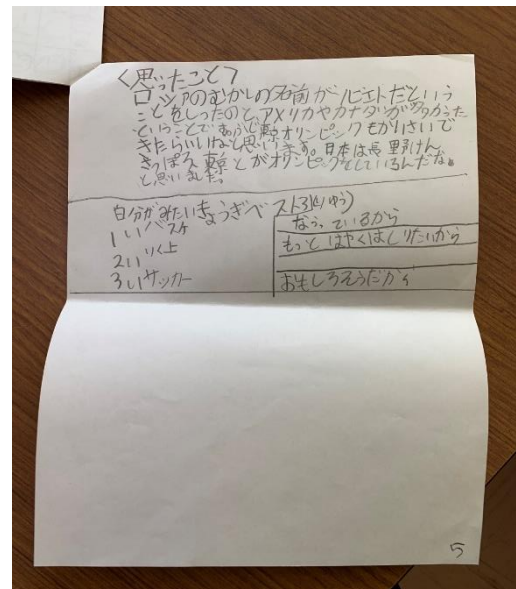 〈思ったこと〉
ロシアのむかしの名前がソビエトだという
ことをしったのと、アメリカやカナダいがつよかった
ということです。あと東京オリンピックもかいさいで
きたらいいなと思います。日本は長野けん
さっぽろ、東京とがオリンピックをしているんだな。
と思いました。
自分がみたいきょうぎベスト3(りゆう)
1いバスケ
ならっているから
2いりく上
もっとはやくはしりたいから
3いサッカー
おもしろそうだから
5